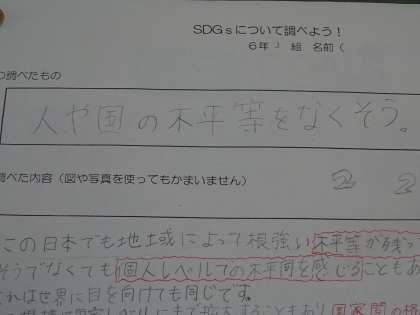 SDGsについて調べよう！
6年 J 組 名前（
の調べたもの
人や国の不平等をなくそう。
調べた内容（図や写真を使ってもかまいません）
2 2
この日本でも地域によって根強い不平等が残っ
そうでなくても個人レベルでの不平同を感じることもあ
これは世界に目を向けても同じです。
国家間の格